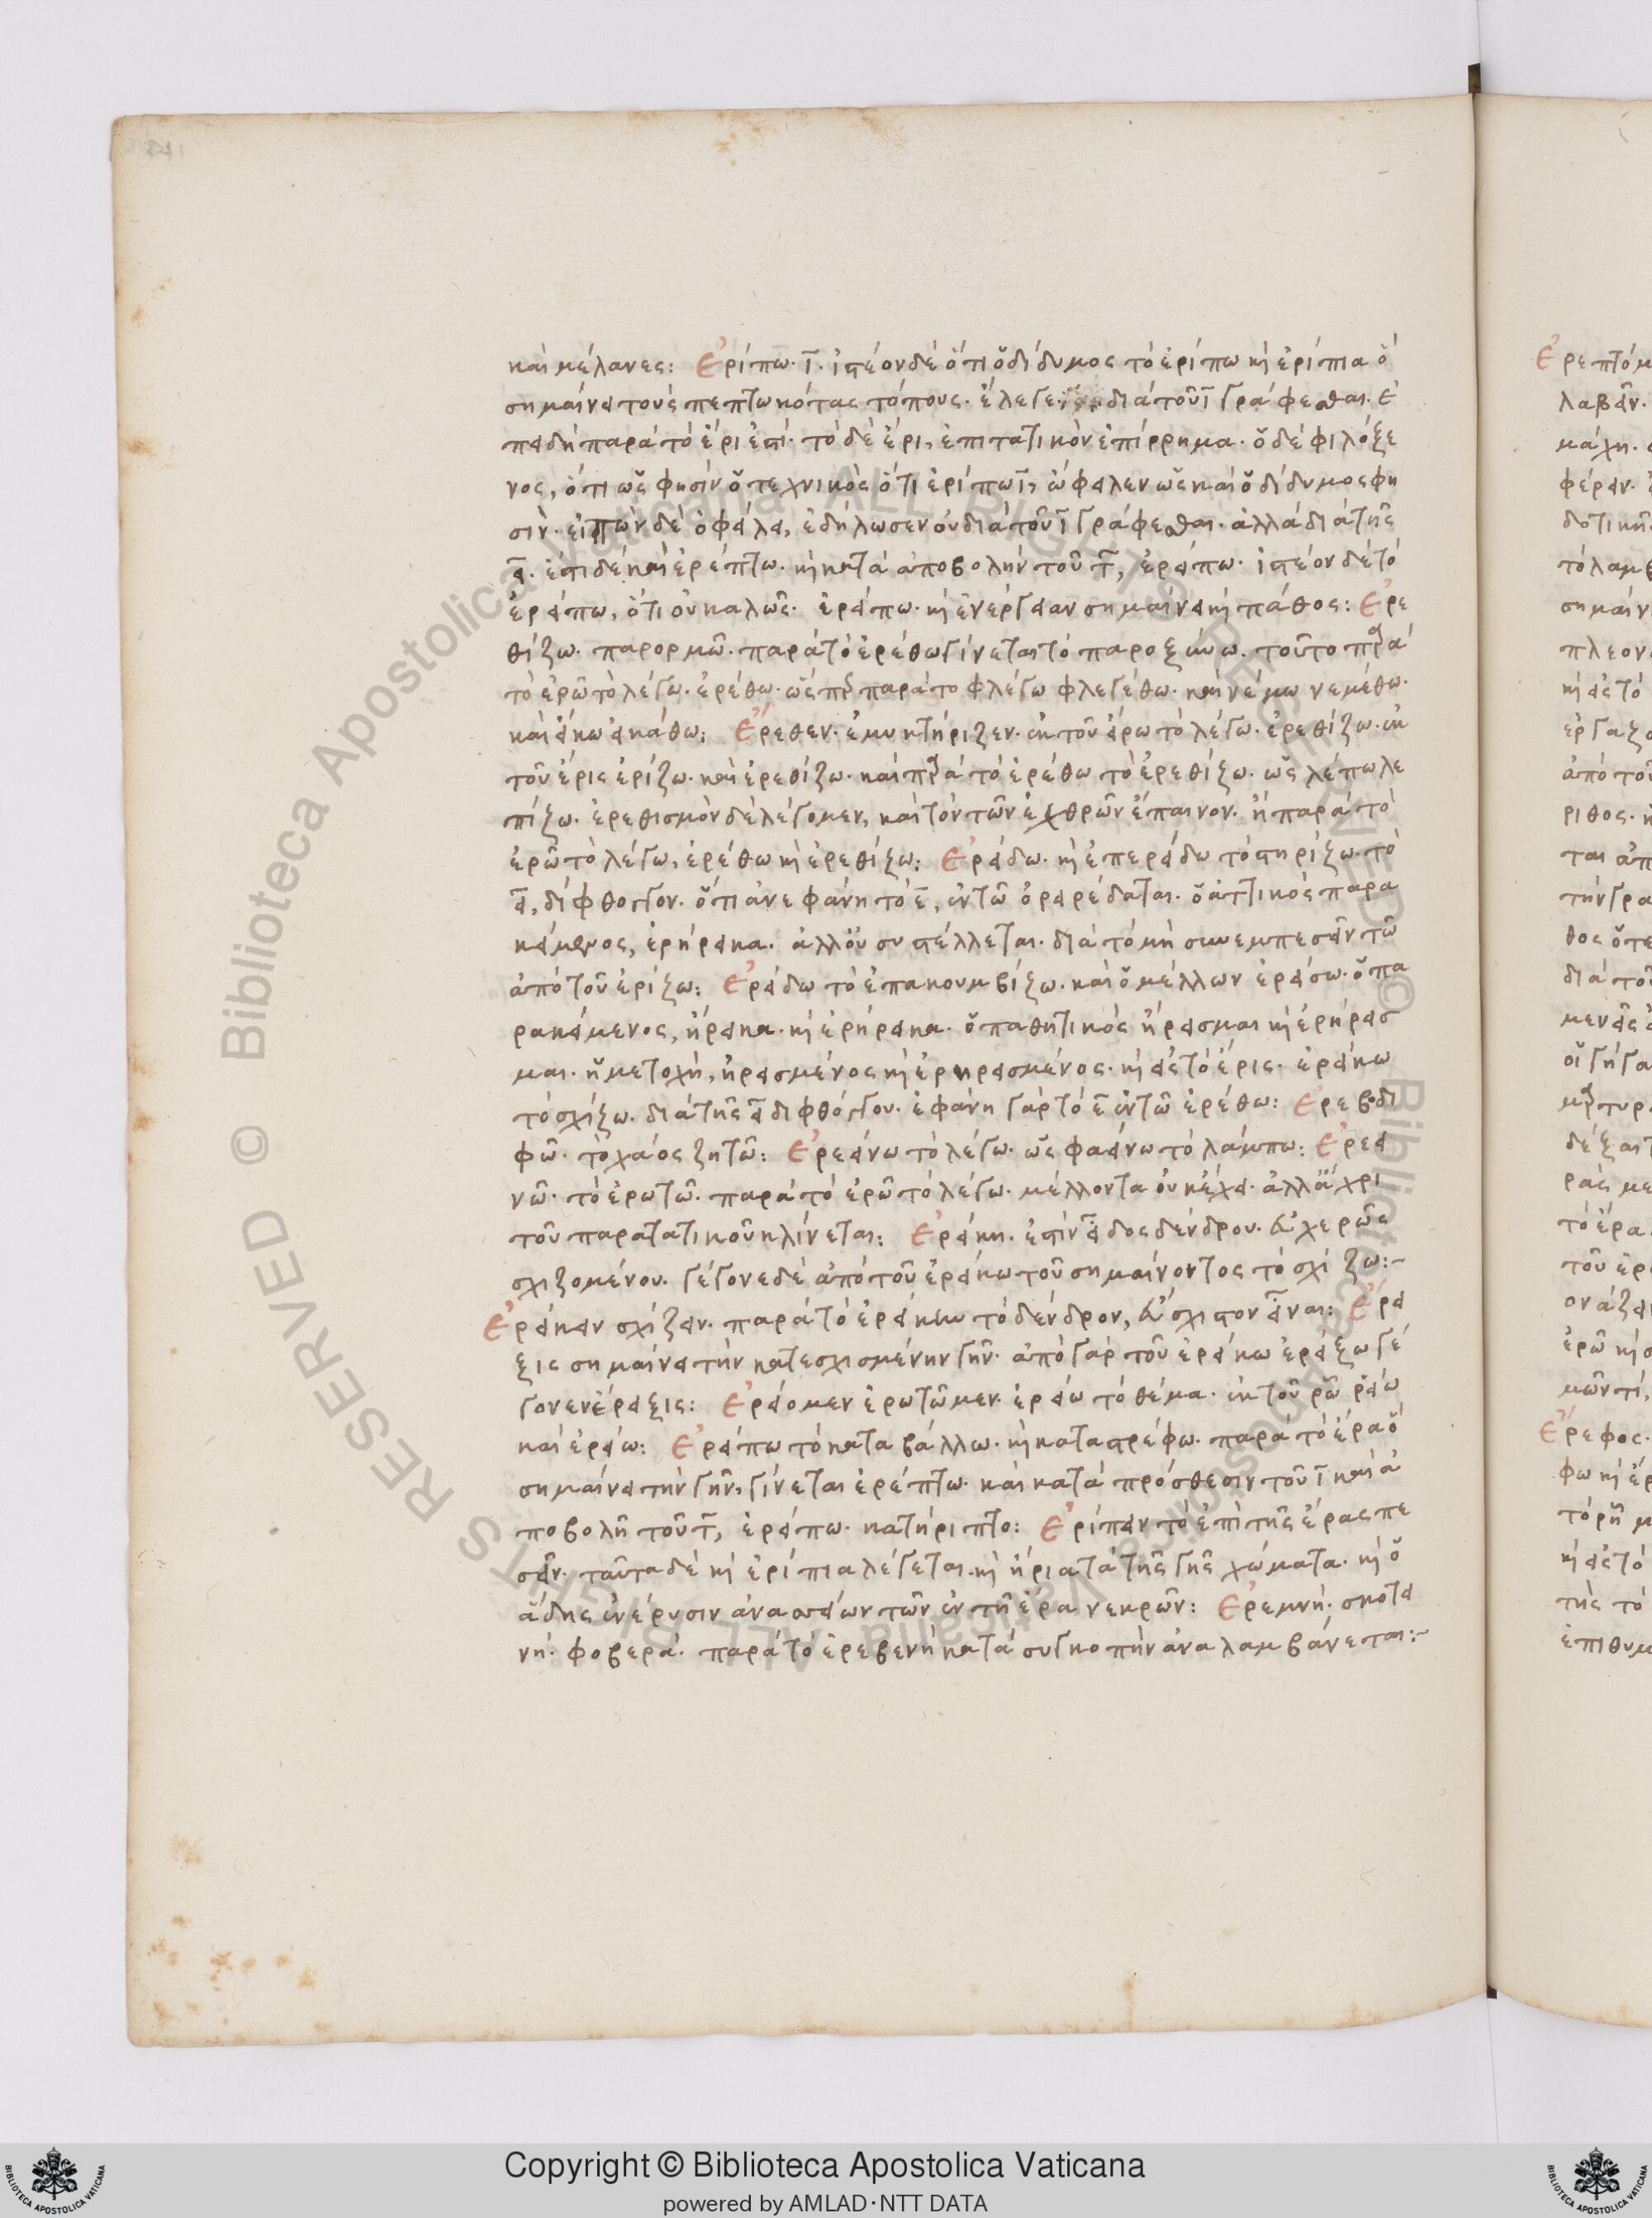 καὶ μέλανες: Ἐρίπω. ῑ. ἰστέον δὲ ὅτι ὁ δίδυμος τὸ ἐρίπω κὶ ἐρίπια ὃ
σημαίνει τοὺς πεπτωκότας τόπους. ἔλεγε διὰ τοῦ ῑ γράφεσθαι. ἐ
πειδὴ παρὰ τὸ ἔρι ἐστί. τὸ δὲ ἔρι, ἐπιτατικὸν ἐπίρρημα. ὁ δὲ φιλόξε
νος, ὅτι ὥς φησὶν ὁ τεχνικὸς ὅτι ἐρίπω ῑ, ὤφειλεν ὡς καὶ ὁ δίδυμος φη
σιν. εἰπὼν δὲ ὀφείλει, ἐδήλωσεν οὐ διὰ τοῦ ῑ γράφεσθαι. ἀλλὰ διὰ τῆς
ει. ἔστι δὲ καὶ ἐρέπτω. κὶ κατὰ ἀποβολὴν τοῦ τ̄, ἐρείπω. ἰστέον δὲ τὸ
ἐρείπω, ὅτι οὐ καλῶς. ἐρείπω. κὶ ἐνέργειαν σημαίνει κὶ πάθος: Ἐρε
θίζω. παρορμῶ. παρὰ τὸ ἐρέθω γίνεται τὸ παροξύνω. τοῦτο παρὰ
τὸ ἐρῶ τὸ λέγω. ἐρέθω. ὥσπερ παρὰ το φλέγω φλεγέθω. καὶ νέμω νεμέθω.
καὶ εἴκω εἰκάθω: Ἔρεθεν. ἐμυκτήριζεν. ἐκ τοῦ εἴρω τὸ λέγω. ἐρεθίζω. ἐκ
τοῦ ἔρις ἐρίζω. καὶ ἐρεθίζω. καὶ παρὰ τὸ ἐρέθω τὸ ἐρεθίζω. ὡς λέπω λε
πίζω. ἐρεθισμὸν δὲ λέγομεν, καὶ τὸν τῶν ἐχθρῶν ἔπαινον. ἢ παρὰ τὸ
ἐρῶ τὸ λέγω, ἐρέθω κὶ ἐρεθίζω: Ἐρείδω. κὶ ἐπερείδω τὸ στηρίζω. τὸ
ει, δίφθογγον. ὅτι ἀνεφάνη τὸ ε̄, ἐν τῶ ἐρηρέδαται. ὁ ἀττικὸς παρα
κείμενος, ἐρήρεικα. ἀλλ' οὐ συστέλλεται. διὰ τὸ μὴ συνεμπεσεῖν τῶ
ἀπὸ τοῦ ἐρίζω: Ἐρείδω τὸ ἐπακουμβίζω. καὶ ὁ μέλλων ἐρείσω. ὁ πα
ρακείμενος, ἤρεικα. κὶ ἐρήρεικα. ὁ παθητικὸς ἤρεισμαι κὶ ἐρήρεισ
μαι. ἡ μετοχὴ, ἠρεισμένος κὶ ἐρηρεισμένος. κὶ εἰς τὸ ἔρις. ἐρείκω
τὸ σχίζω. διὰ τῆς ει διφθόγγου. ἐφάνη γὰρ τὸ ε̄ ἐν τῶ ἐρέθω: Ἐρεβοδι
φῶ. τὸ χάος ζητῶ: Ἐρεείνω τὸ λέγω. ὡς φαείνω τὸ λάμπω: Ἐρεει
νῶ. τὸ ἐρωτῶ. παρὰ τὸ ἐρῶ τὸ λέγω. μέλλοντα οὐκ ἔχει. ἀλλ' ἄχρι
τοῦ παρατατικοῦ κλίνεται: Ἐρείκη. ἐστὶν εἶδος δένδρου. εὐχερῶς
σχιζομένου. γέγονε δὲ ἀπὸ τοῦ ἐρείκω τοῦ σημαίνοντος τὸ σχίζω:~
Ἐρείκειν σχίζειν. παρὰ τὸ ἐρείκω τὸ δένδρον, εὔσχιστον εἶναι: Ἔρει
ξις σημαίνει τὴν κατεσχισμένην γῆν. ἀπὸ γὰρ τοῦ ἐρείκω ἐρείξω γέ
γονεν ἔρειξις: Ἐρείομεν ἐρωτῶμεν. ἐρείω τὸ θέμα. ἐκ τοῦ ῥῶ ῥείω
καὶ ἐρείω: Ἐρείπω τὸ καταβάλλω. κὶ καταστρέφω. παρὰ τὸ ἔρα ὃ
σημαίνει τὴν γῆν, γίνεται ἐρέπτω. καὶ κατὰ πρόσθεσιν τοῦ ῑ καὶ ἀ
ποβολῆ τοῦ τ̄, ἐρείπω. κατήριπτο: Ἐρίπειν τὸ ἐπὶ τῆς ἔρας πε
σεῖν. ταῦτα δὲ κὶ ἐρίπια λέγεται. κὶ ἠρία τὰ τῆς γῆς χώματα. κὶ ὁ
ἅδης ἐνέρυσιν ἀνασσείων τῶν ἐν τῆ ἔρα νεκρῶν: Ἐρεμνὴ. σκοτει
νή. φοβερά. παρὰ τὸ ἐρεβενὴ κατὰ συγκοπὴν ἀναλαμβάνεται:~
Copyright © Biblioteca Apostolica Vaticana
powered by AMLAD·NTT DATA